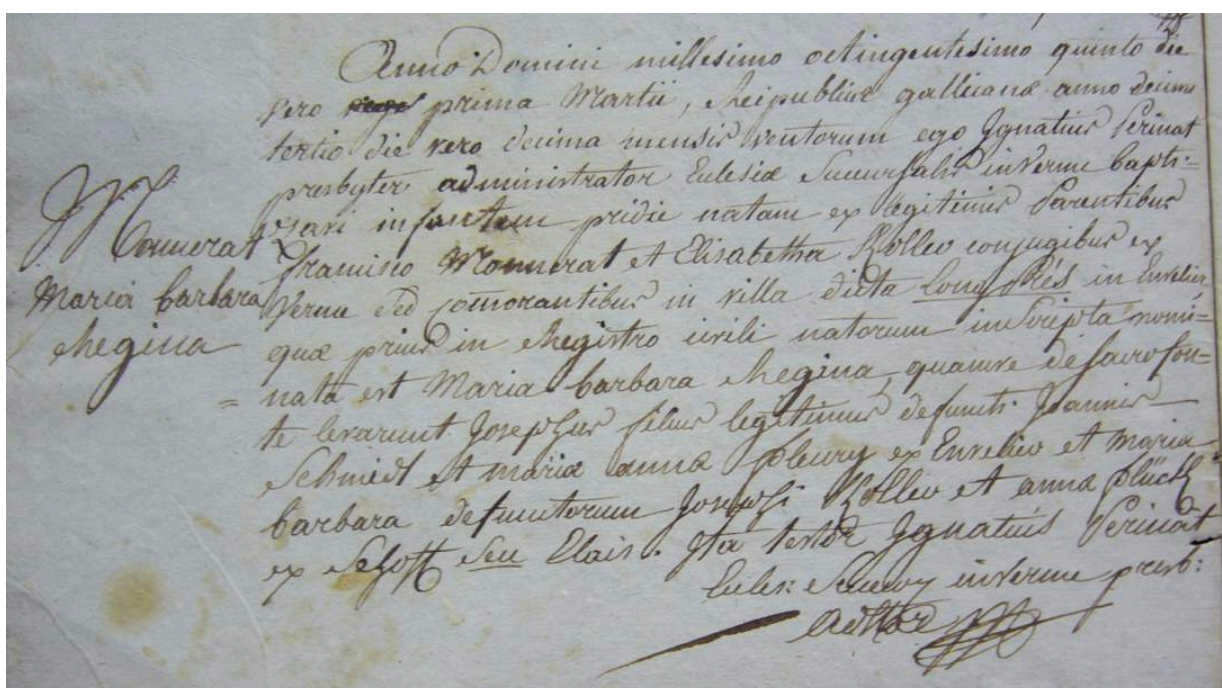 Anno Domini millesimo octingentesimo quinto die
vero prima Martii, Reipublicæ gallicanæ anno decimo
tertio die vero decima mensis ventorum ego Ignatius Perinat
presbyter administrator Eclesiæ Sucursalis in Vermu bapti=
Monnerat
zavi infantem pridie natam ex legitimis Parentibus
Francisco Monnerat et Elisabetha Kolleu conjugibus ex
Maria barbara
Vermu sed comorantibus in villa dicta Longs Prés in
Regina
quæ prius in Registro civili natorum inscripta nomi=
= nata est Maria barbara Regina, quamve de sacro fon=
te levarunt Josephus filius legitimus defuncti Joannis
Schmidt et mariæ annæ fleury ex et maria
barbara defunctorum Josephi Kolleu et annæ
ex seu Elais. Ita testor Ignatius Perinat
Ecles: in Vermu presb: